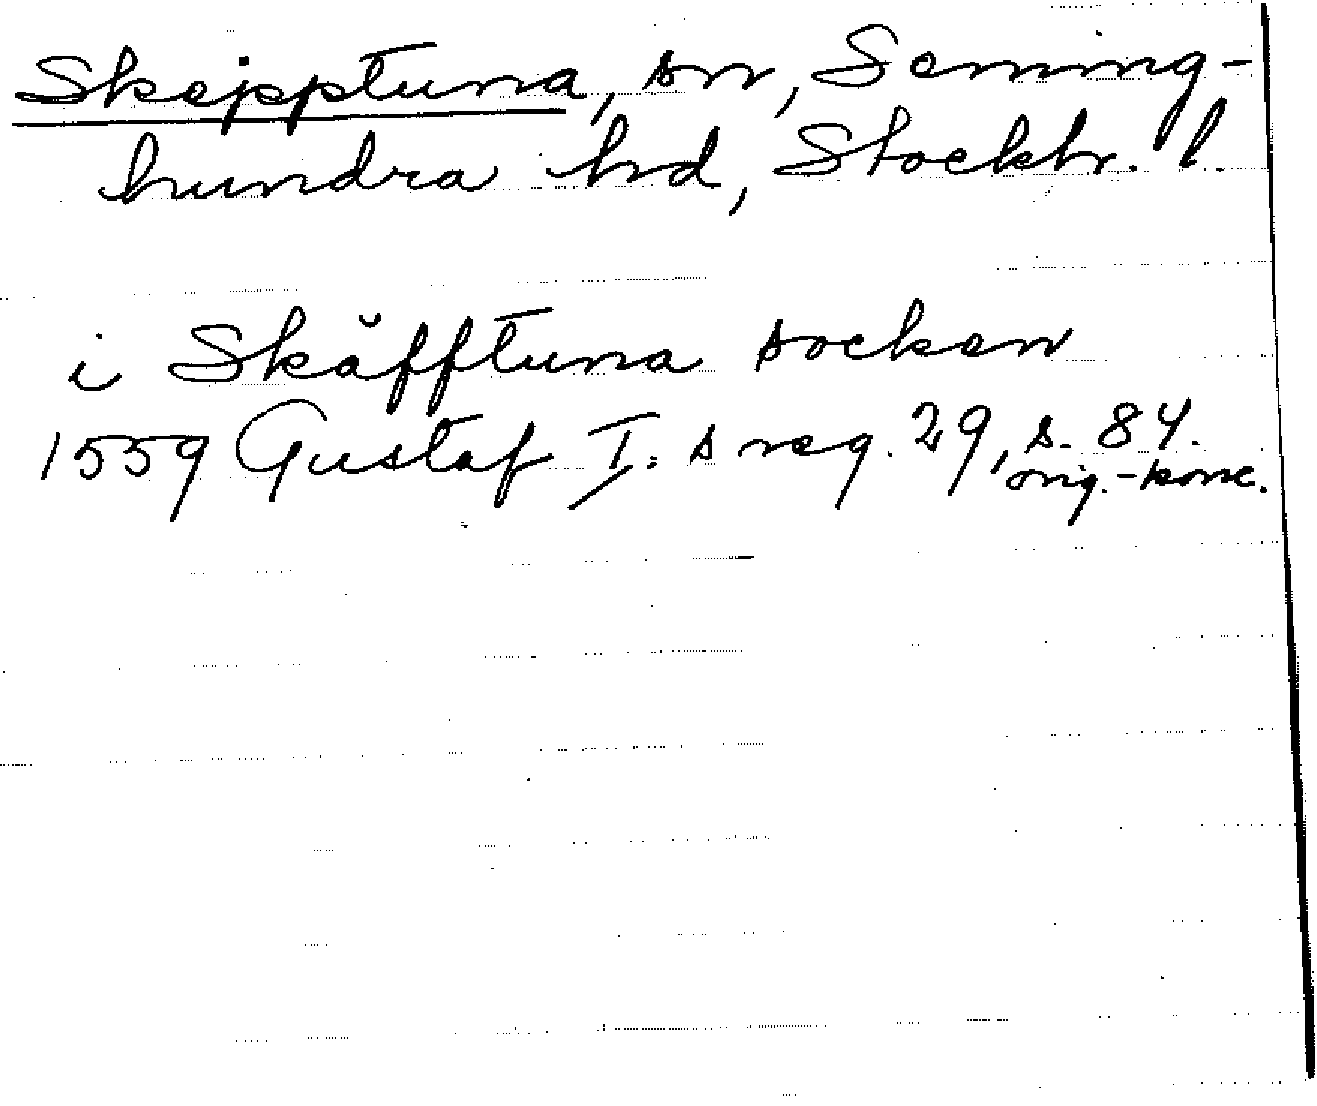 Skepptuna, sn, Seming-
hundra hd, Stockh. l.
i Skäfftuna socken
1559 Gustaf I:s reg. 29, s. 84.
orig.-konc.